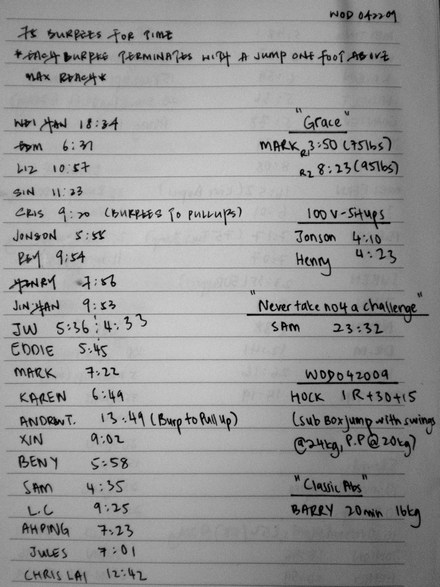 WOD 042209
75 BURPEES FOR TIME
*EACH BURPEE TERMINATES WITH A JUMP ONE FOOT ABOVE
MAX REACH*
WEI HAN 18:34
EDM 6:31
LIZ 10:57
SIN 11:23
CRIS 9:20 (BURPEES TO PULLUPS)
JONSON 5:55
REY 9:54
HENRY 7:56
JIN HAN 9:53
JW 5:36 ; 4:33
EDDIE 5:45
MARK 7:22
KAREN 6:49
ANDREW T. 13:49 (Burp to Pull Up)
XIN 9:02
BENY 5:58
SAM 4:35
L.C 9:25
AHPING 7:23
JULES 7:01
CHRIS LAI 12:42
"Grace"
MARK R1 3:50 (75lbs)
R2 8:23 (95lbs)
100 V-SITUPS
Jonson 4:10
Henry 4:23
"Never take no4 a challenge"
SAM 23:32
WOD042009
HOCK 1R+30+15
(sub Box jump with swings
@24kg, P.P @20kg)
"Classic Abs"
BARRY 20min 16kg